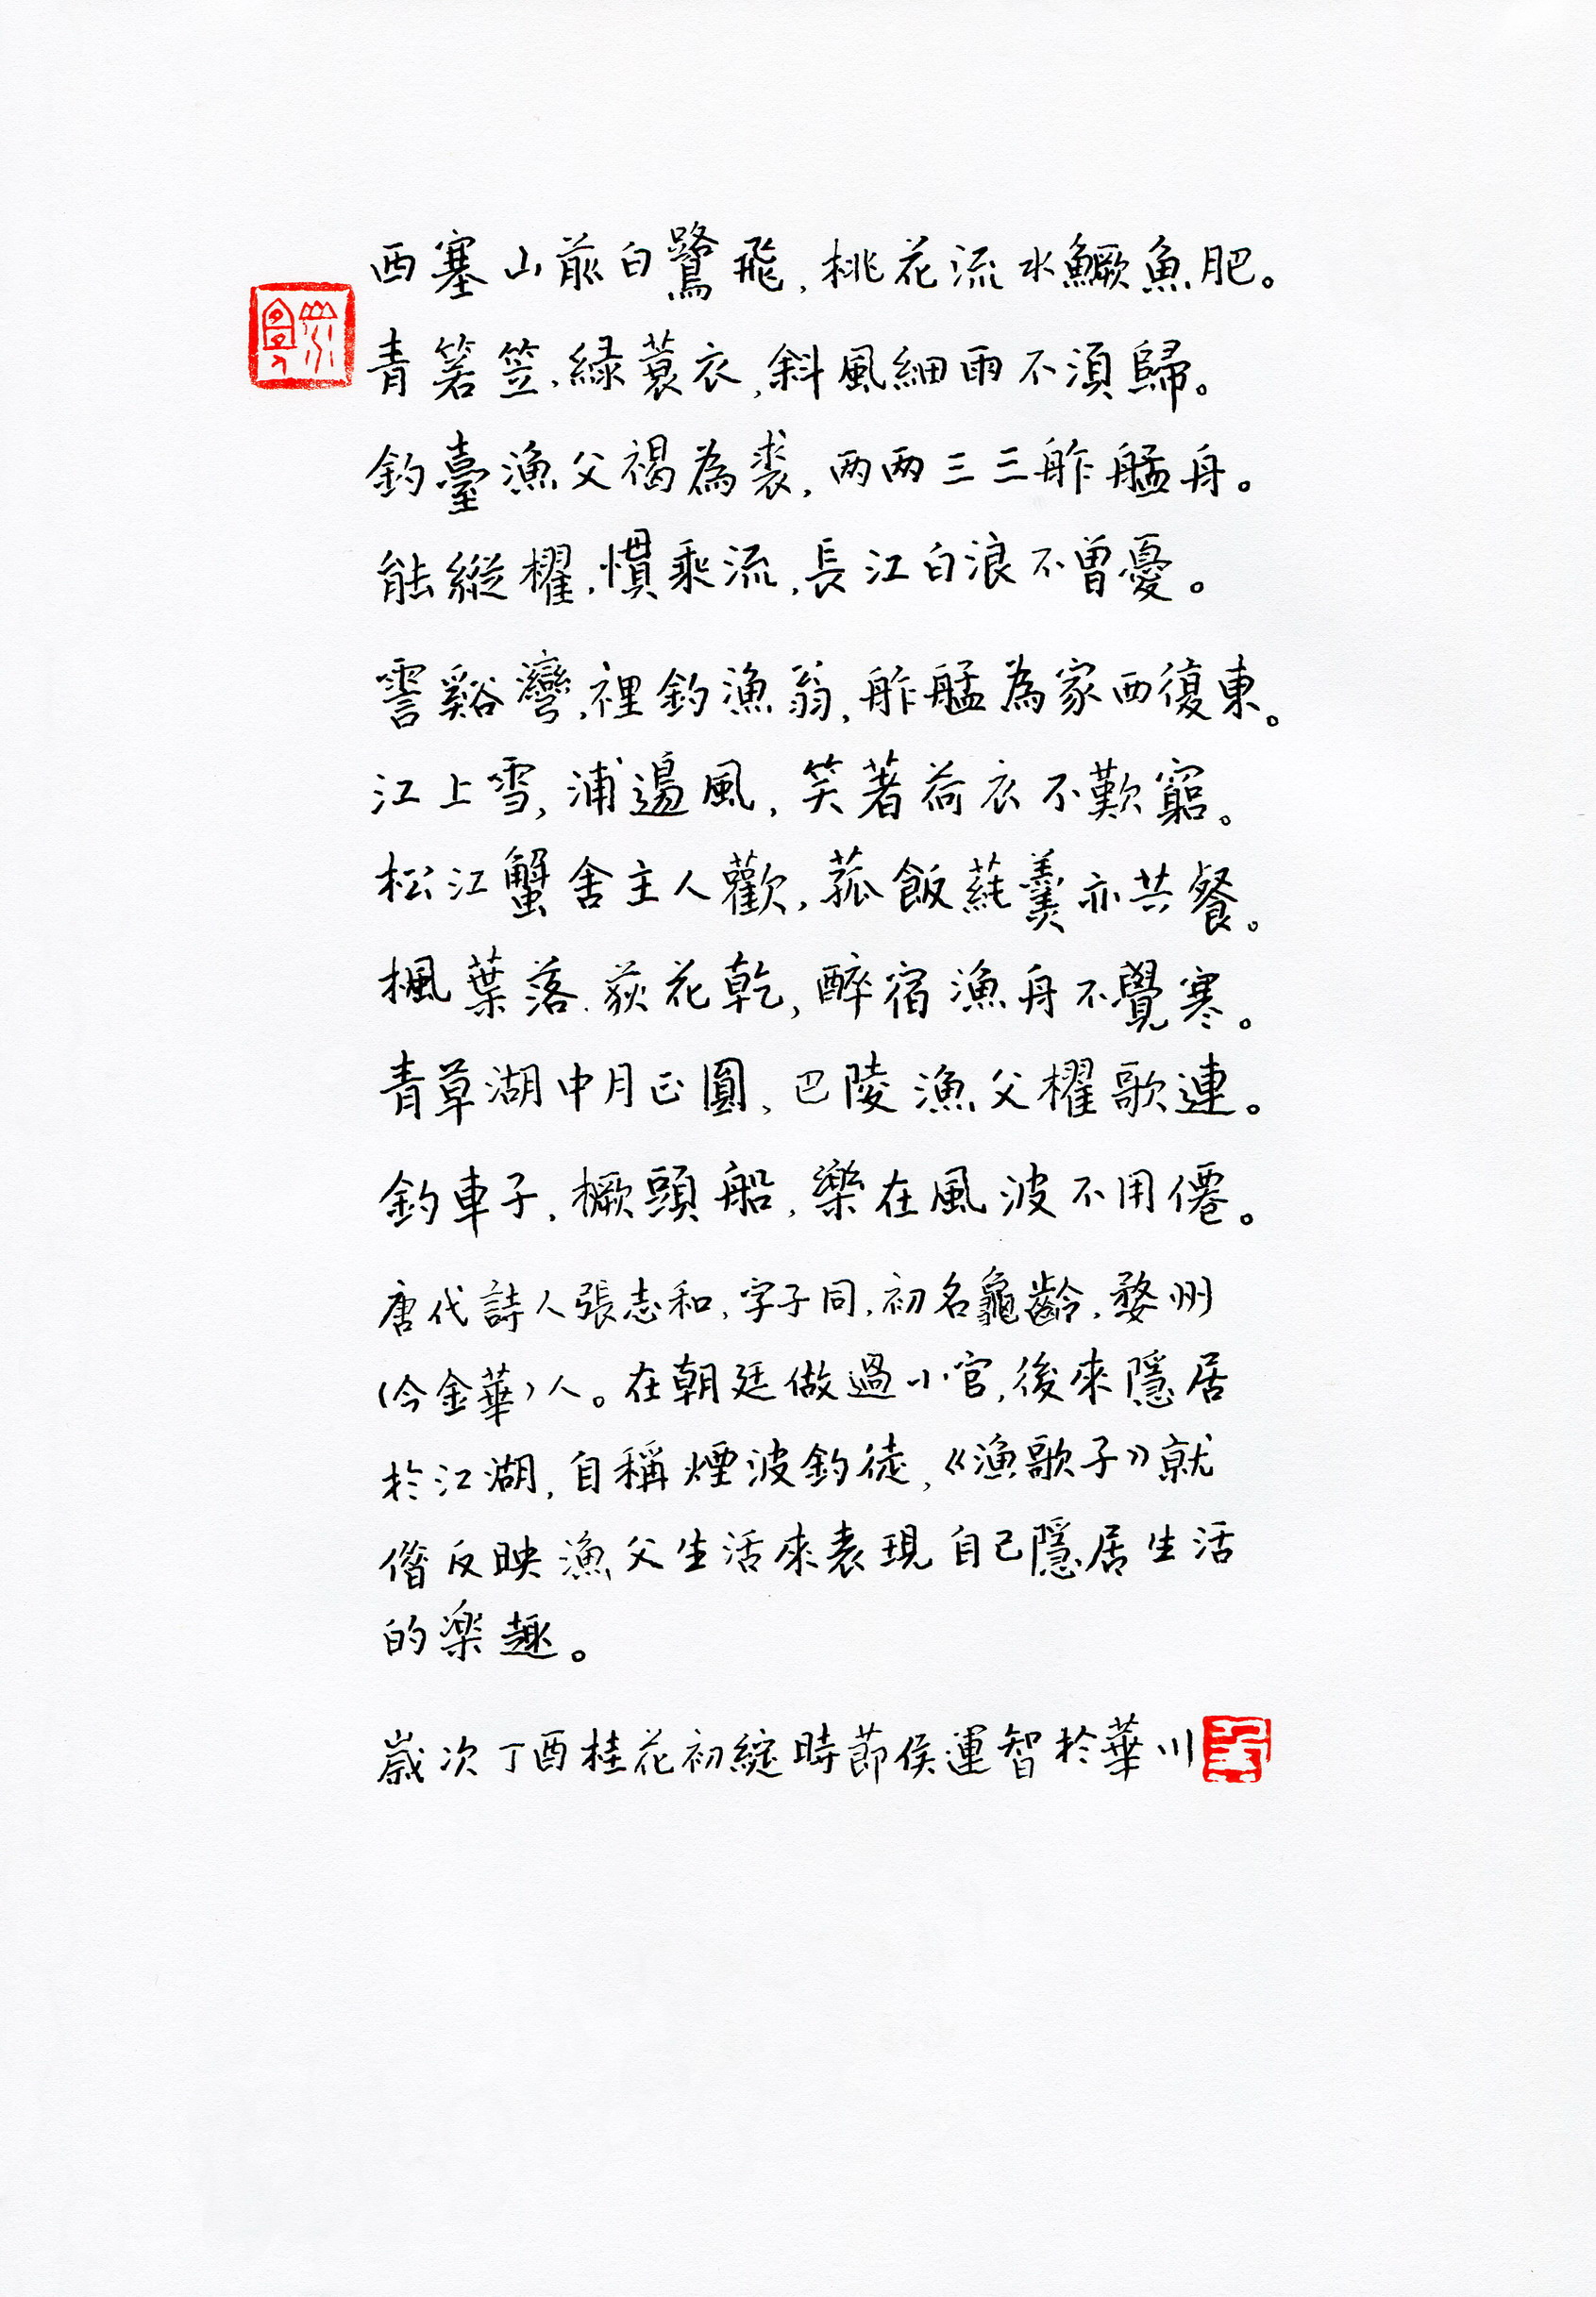 西塞山前白鷺飛，桃花流水鱖魚肥。
青箬笠，綠蓑衣，斜風細雨不須歸。
釣臺漁父褐為裘，两两三三舴艋舟。
能縱櫂，慣乘流，長江白浪不曾憂。
霅谿灣，裡釣漁翁，舴艋為家西復東。
江上雪，浦邊風，笑著荷衣不歎窮。
松江蟹舍主人歡，菰飯蒓羹亦共餐。
楓葉落，荻花乾，醉宿漁舟不覺寒。
青草湖中月正圓，巴陵漁父櫂歌連。
釣車子，橛頭船，樂在風波不用僊。
唐代詩人張志和，字子同，初名龜齡，婺州
（今金華）人。在朝廷做過小官，後來隱居
於江湖，自稱煙波釣徒，《漁歌子》就
借反映漁父生活來表現自己隱居生活
的樂趣。
歲次丁酉桂花初綻時節侯運智於華川